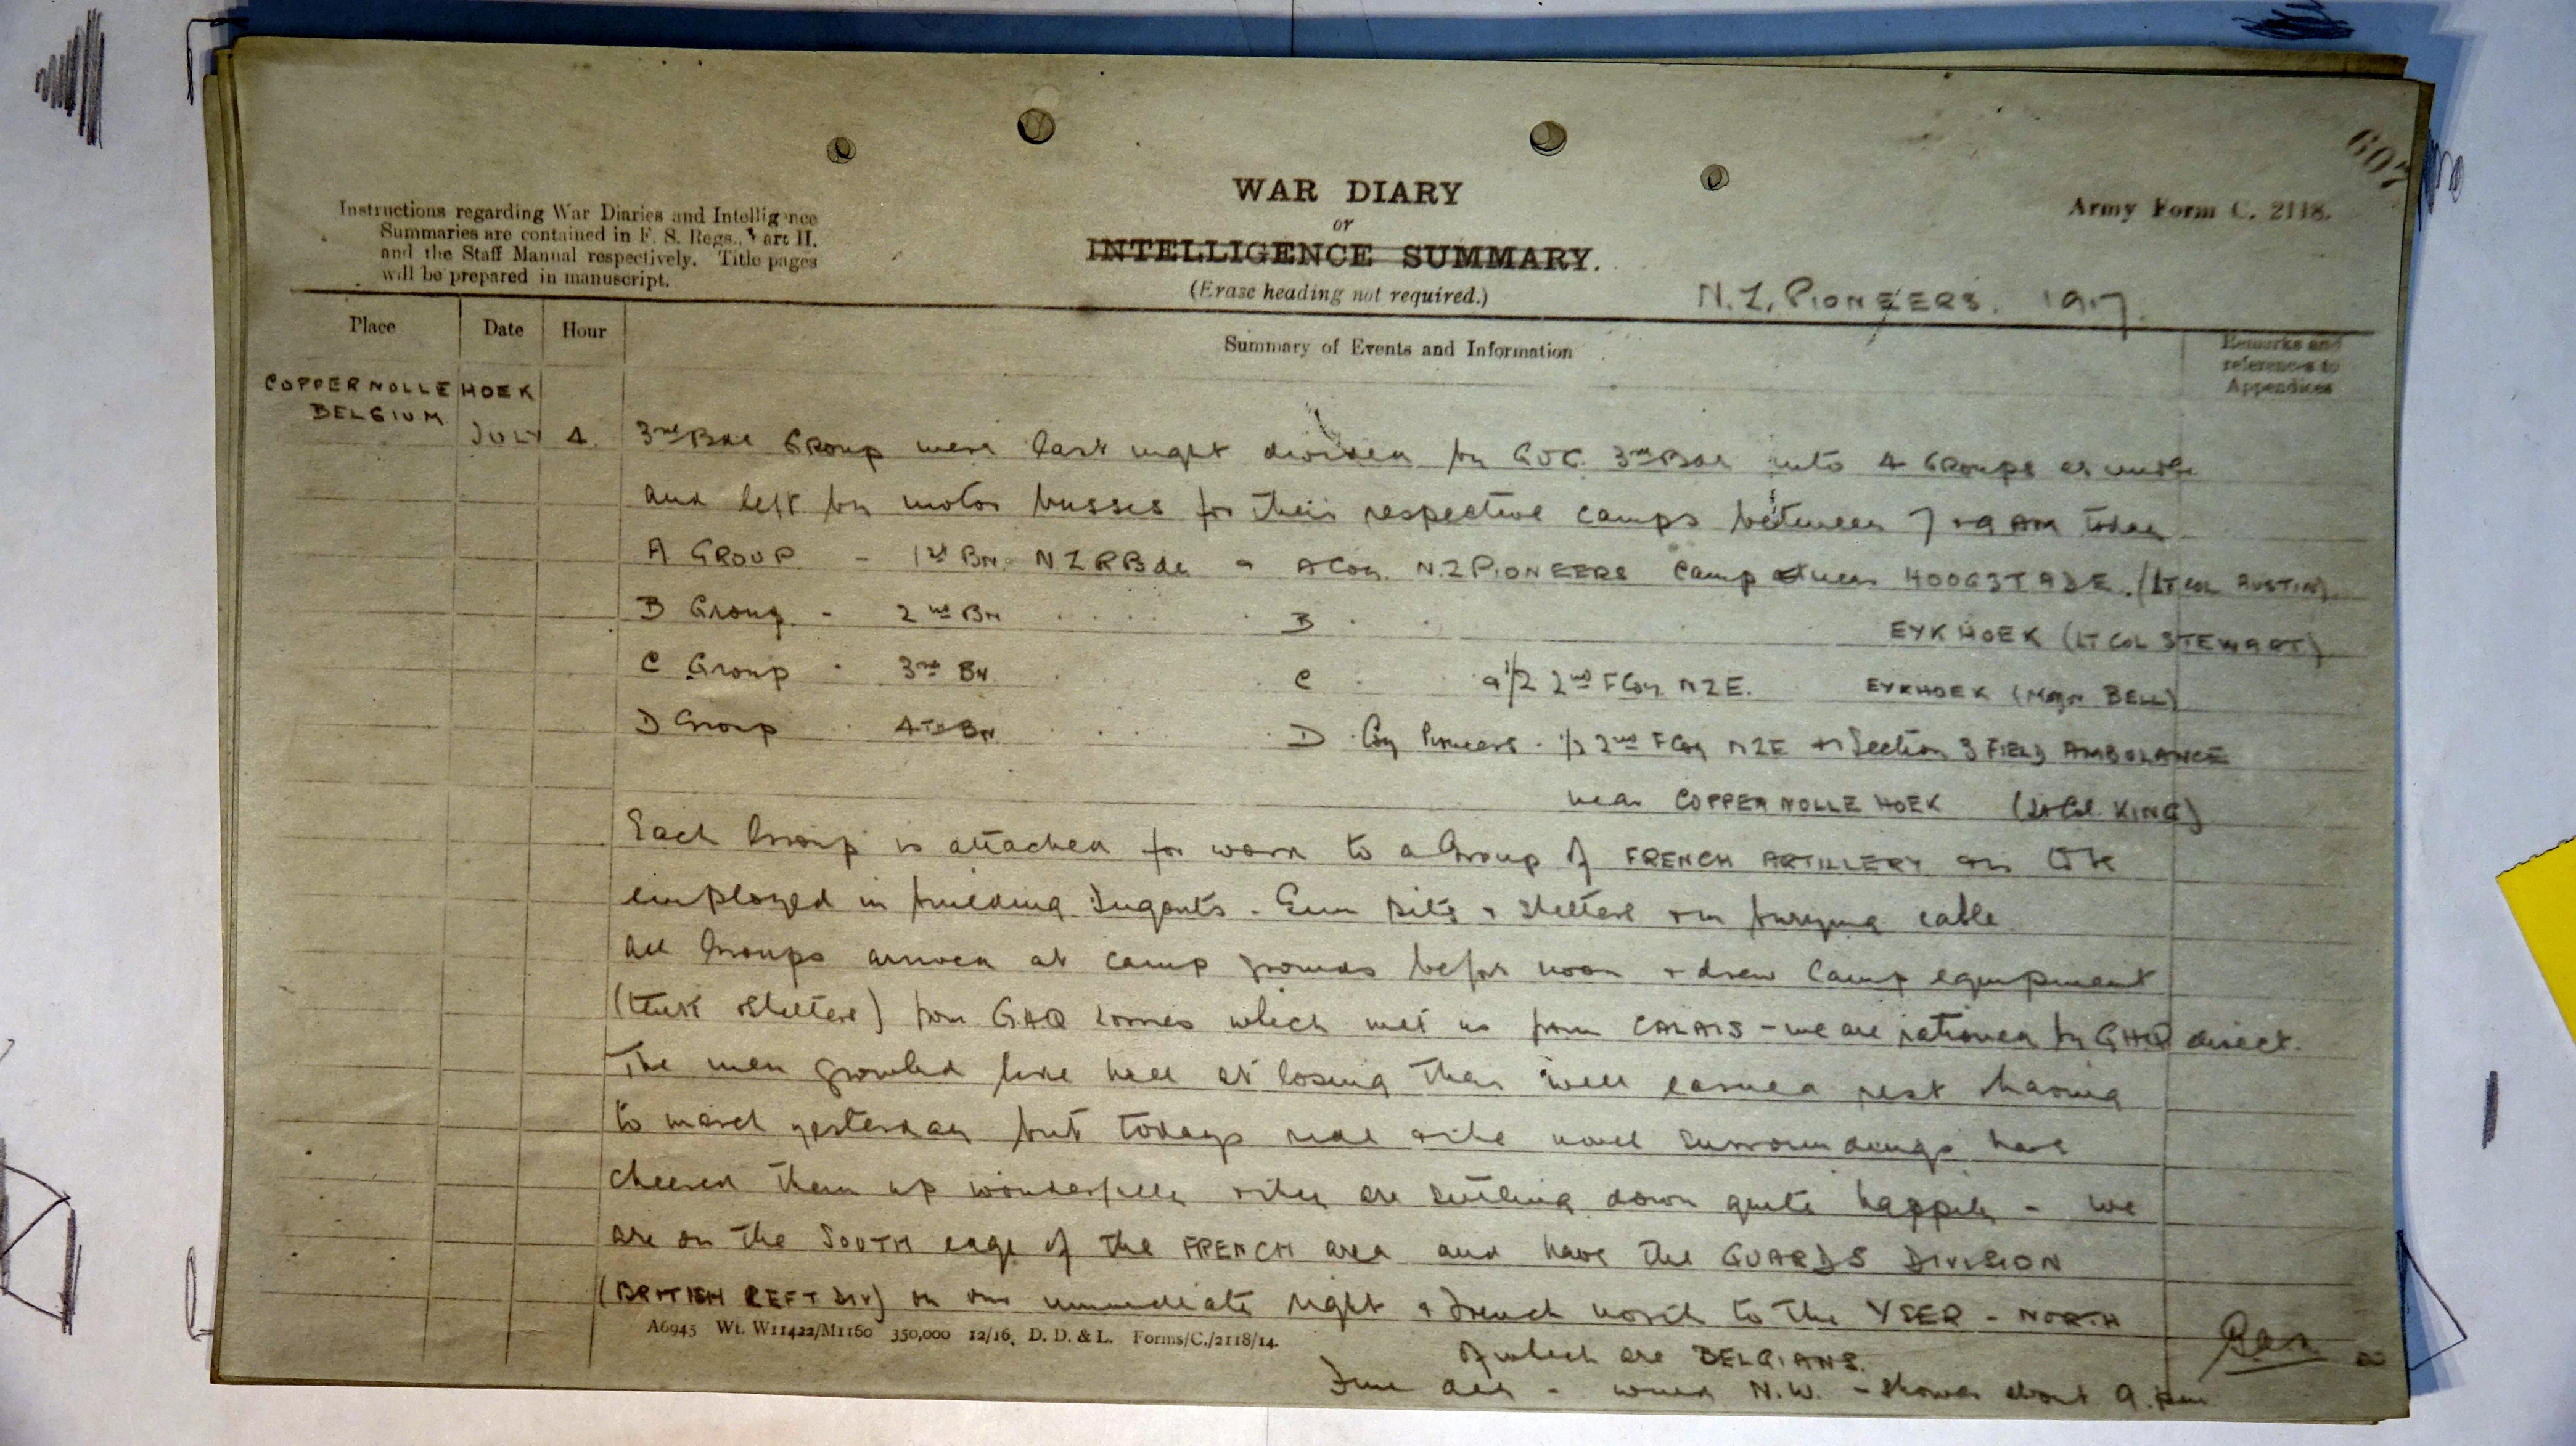 607
Army Form C. 2118.
WAR DIARY
or
INTELLIGENCE SUMMARY.
(Erase heading not required.)
Instructions regarding War Diaries and Intelligence
Summaries are contained in F. S. Regs., Part II.
and the Staff Manual respectively. Title pages
will be prepared in manuscript.
N.Z. PIONEERS. 1917.
Place Date Hour Summary of Events and Information Remarks and references to Appendices
COPPERNOLLE HOEK
BELGIUM
JULY 4. 3rd Bde GRoup were last night divided by GOC. 3rd Bde into 4 GRoups as under
and left by motor busses for their respective camps between 7 & 9 AM today
A GROUP - 1st Bn. NZRBde & A Coy. N.Z PIONEERS Camp near HOOGSTADE. (LT COL AUSTIN).
B Group - 2nd Bn . . . . . B . . EYKHOEK (LT COL STEWART)
C Group - 3rd Bn . . . C . & 1/2 2nd F Coy NZE. EYKHOEK (Major BELL)
D Group . 4TH Bn . . . . D Coy Pioneers . 1/2 2nd F Coy NZE & 1 Section 3 FIELD AMBULANCE
near COPPERNOLLE HOEK (Lt Col. KING)
Each Group is attached for work to a Group of FRENCH ARTILLERY to be
employed in building Dugouts - Gun pits & shelters & in burying cable
all Groups arrived at camp grounds before noon & drew camp equipment
(tents shelters) from GHQ lorries which met us from CALAIS - we are rationed by GHQ direct.
The men growled like hell at losing their well earned rest & having
to march yesterday but todays ride & the novel surroundings have
cheered them up wonderfully & they are settling down quite happily - we
are on the SOUTH edge of the FRENCH area and have the GUARDS DIVISION
(BRITISH LEFT DIV) on our immediate right & French north to the YSER - NORTH
of which are BELGIANS.
Fine day - wind N.W. - shower about 9. pm
A6945 Wt. W11422/M1160 350,000 12/16. D. D. & L. Forms/C./2118/14.